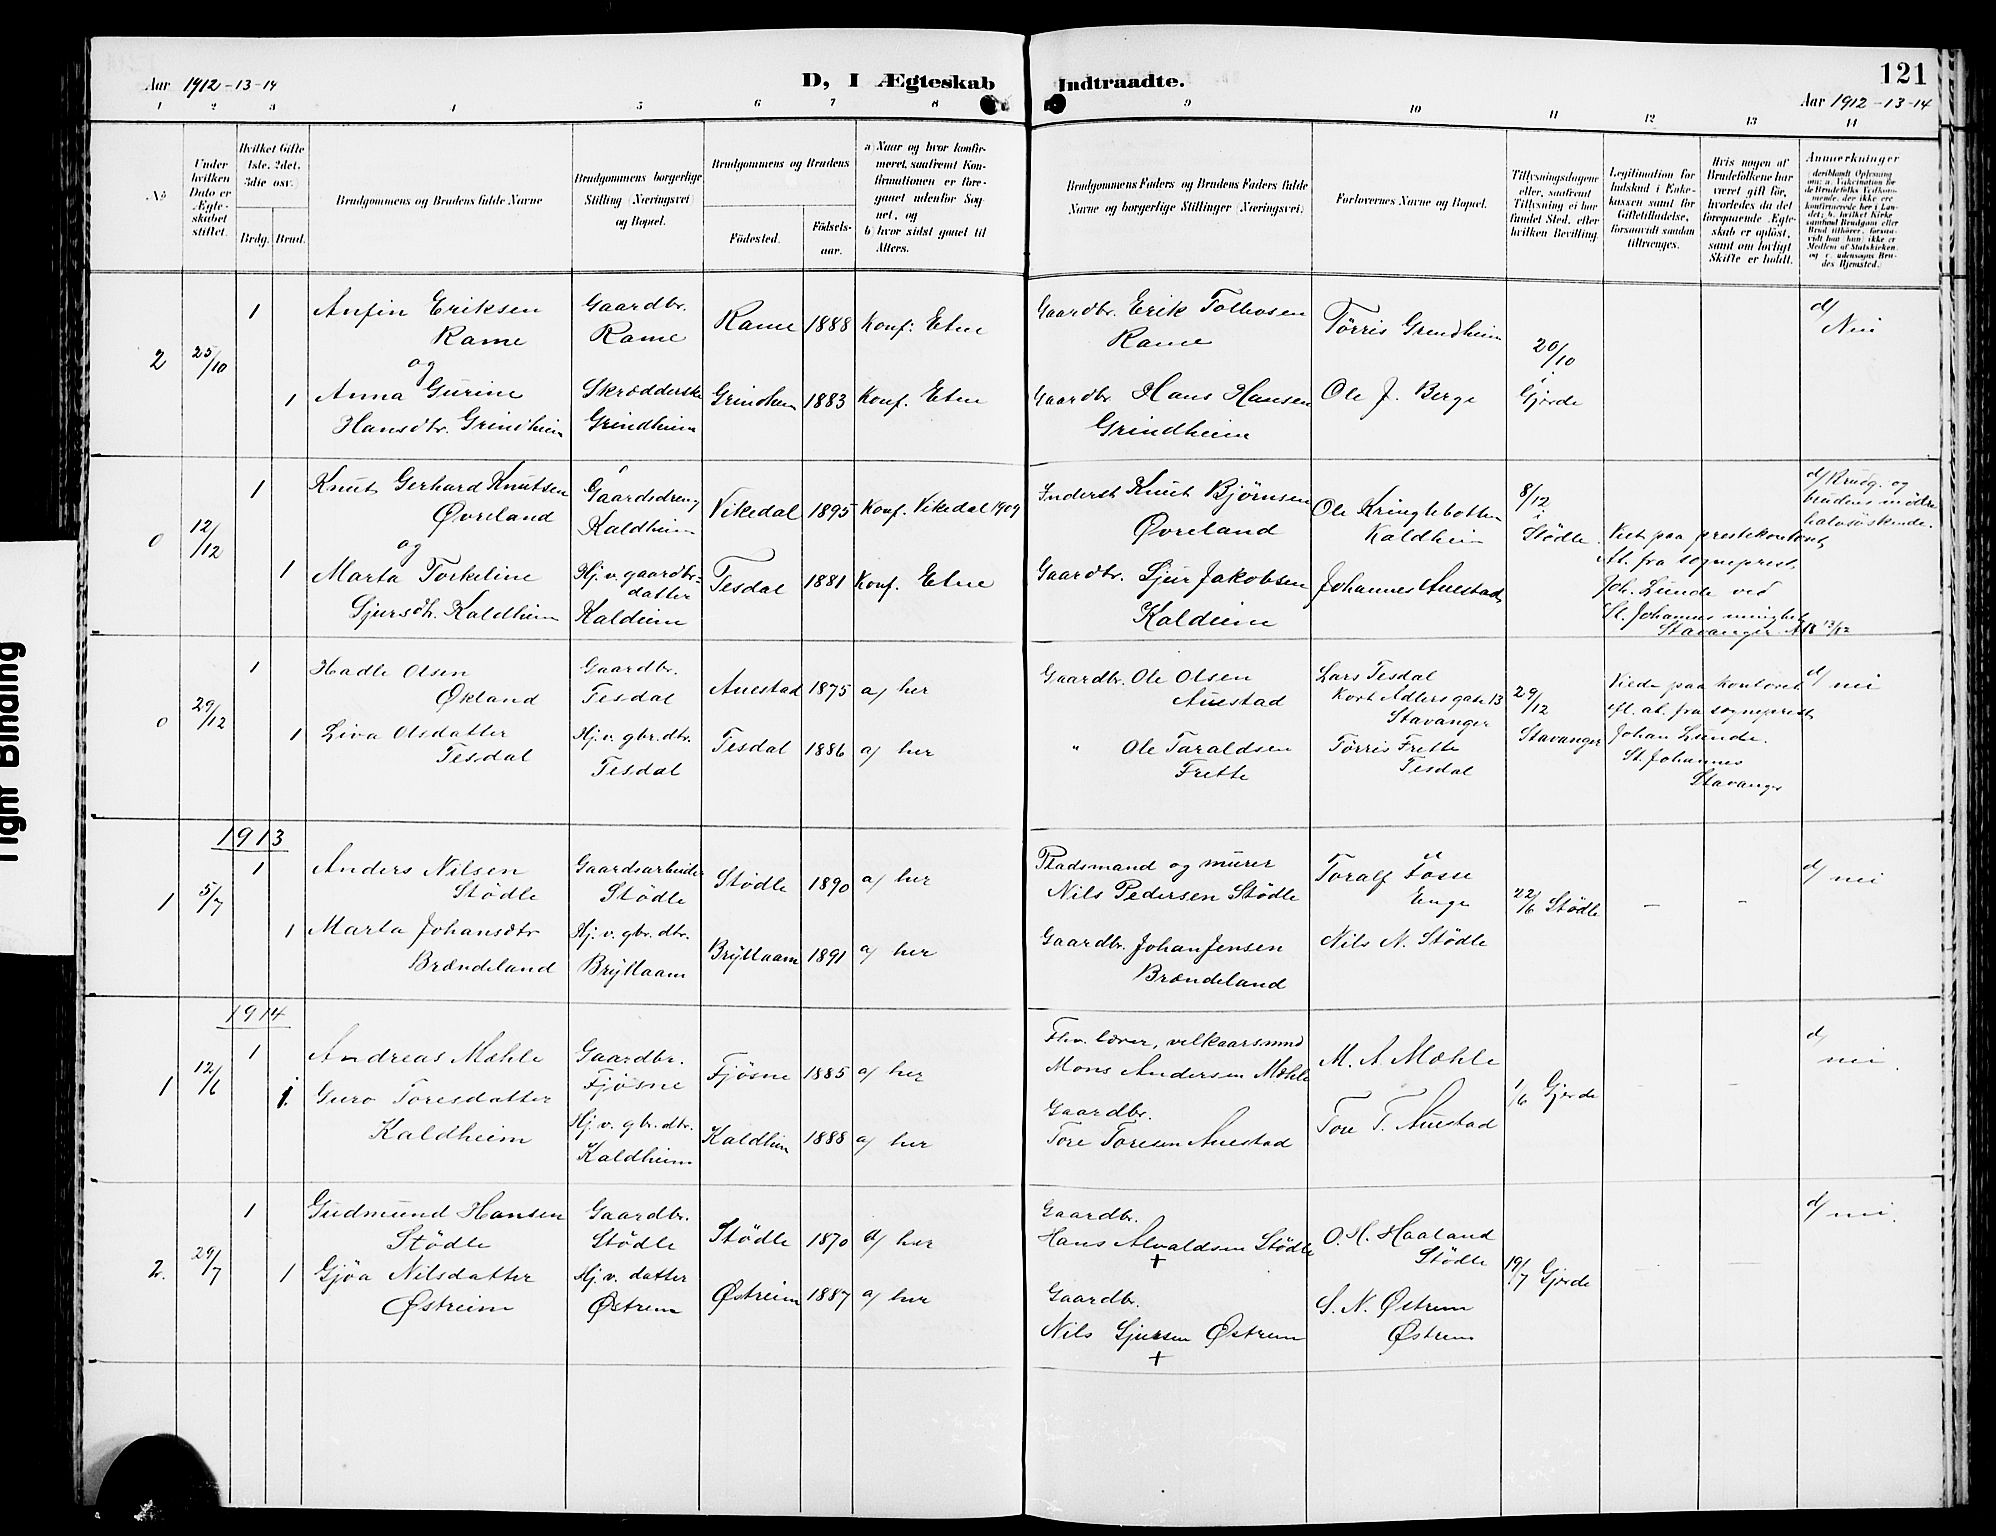 Aar 1912-13-14
D, I Ægteskab Indtraadte.
121
Aar 1912-13-14
1 2 3 4 5 6 7 8 9 10 11 12 13 14
No
Under hvilken Dato er Ægteskabet stiftet.
Hvilket Gifte 1ste, 2det, 3die osv.)
Brdg. Brud.
Brudgommens og Brudens fulde Navne
Brudgommens borgerlige Stilling (Næringsvei) og Bopæl.
Brudgommens og Brudens
Fødested.
Fødselsaar.
a) Naar og hvor konfirmeret, saafremt Konfirmationen er foregaaet udenfor Sognet, og
b) hvor sidst gaaet til Alters.
Brudgommens Faders og Brudens Faders fulde Navne og borgerlige Stillinger (Næringsvei.
Forlovernes Navne og Bopæl.
Tillysningsdagene eller, saafremt Tillysning ei har fundet Sted, efter hvilken Bevilling.
Legitimation for Indskud i Enkekassen samt for Giftetilladelse, forsaavidt saadan tiltrænges.
Hvis nogen af Brudefolkene har været gift før, hvorledes da det foregaaende Ægteskab er opløst, samt om lovligt Skifte er holdt.
Anmerkninger
(deriblandt Oplysning om: a. Vakcination for de Brudefolks Vedkommende, der ikke ere konfirmerede her i Landet; b. hvilket Kirkesamfund Brudgom eller Brud tilhører, forsaavidt han (hun) ikke er Medlem af Statskirken, og c. udensogns Brudes Hjemsted.)
2 25/10 1 Anfin Eriksen Rame
Gaardbr. Rame
Rame 1888 Konf: Etne
Gaardbr. Erik Tolbosen Rame
Tørris Grindheim
20/10 i Gjerde
d/ Nei
og
1 Anna Gurine Hansdtr. Grindheim
Skrædderske Grindheim
Grindhem 1883 Konf. Etne
Gaardbr Hans Hansen Grindheim
Ole J. Berge
0 12/12 1 Knut Gerhard Knutsen Øvreland
Gaardsdreng Kaldheim
Vikedal 1895 Konf. Vikedal 1909
Inderst Knut Bjørnsen Øvreland
Ole Kringlebotten Kaldheim
8/12 i Stødle
Viet paa prestekontoret, At. fra sogneprest Joh. Lunde ved St. Johannes menighet Stavanger 13/12
d/ Brudg. og brudens mödre halvsöskende.
og
1 Marta Torkeline Sjursdtr. Kaldheim
Hj. v. gaardbr-datter Kaldeim
Tesdal 1881 Konf. Etne
Gaardbr. Sjur Jakobsen Kaldeim
Johannes Auestad
0 29/12 1 Hadle Olsen Økland
Gaardbr. Tesdal
Auestad 1875 a/ her
Gaardbr. Ole Olsen Auestad
Lars Tesdal Kort Adlersgate 13 Stavanger
29/12 Stavanger
Viede paa kontoret eft. at. fra sogneprest Johan Lunde. St. Johannes Stavanger
d/ nei
1 Liva Olsdatter Tesdal
Hj. v. gbr. dtr. Tesdal
Tesdal 1886 a/ her
" Ole Taraldsen Frette
Tørris Frette Tesdal
1913
1 5/7 1 Anders Nilsen Stødle
Gaardsarbeider Stødle
Stødle 1890 a/ her
Pladsmand og murer Nils Pedersen Stødle
Toralf Fosse Enge
22/6 Stødle
- -
d/ nei
1 Marta Johansdtr Brændeland
Hj. v. gbr. dtr. Bryllaam
Bryllaam 1891 a/ her
Gaardbr. Johan Jensen Brændeland
Nils N. Stødle
1914
1 12/6 1 Andreas Mæhle
Gaardbr. Fjøsne
Fjøsne 1885 a/ her
Fhv. lærer, vilkaarsmnd Mons Andersen Mæhle
M. A. Mæhle
1/6 Gjerde
d/ nei.
1. Guro Toresdatter Kaldheim
Hj. v. gbr. dtr. Kaldheim
Kaldheim 1888 a/ her
Gaardbr. Tore Toresen Auestad
Tore T. Auestad
2. 29/7 1 Gudmund Hansen Stødle
Gaardbr. Stødle
Stødle 1870 a/ her
Gaardbr. Hans Alvaldsen Stødle +
O. H. Haaland Stødle
19/7 Gjerde
d/ nei.
1 Gjøa Nilsdatter Østreim
Hj. v. datter Østrem
Østreim 1887 a/ her
Gaardbr. Nils Sjursen Østrem +
S. N. Østrem Østrem
Tight Binding